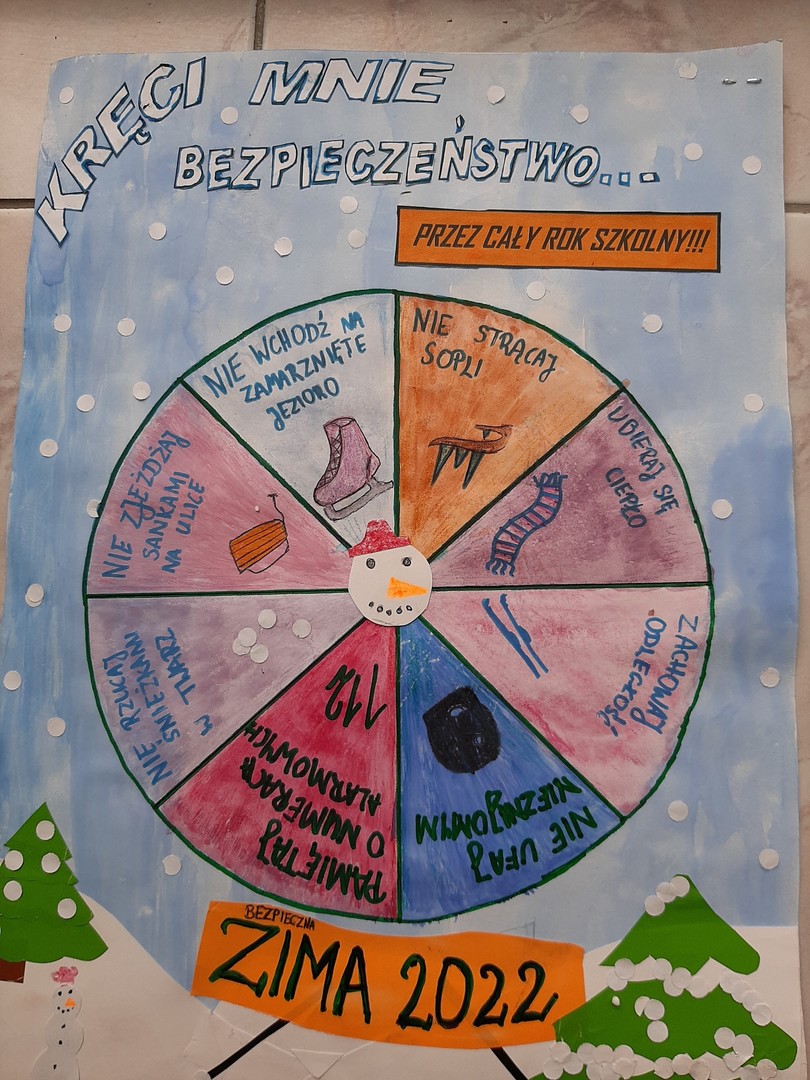 KRĘCI MNIE
BEZPIECZEŃSTWO...
PRZEZ CAŁY ROK SZKOLNY!!!
NIE WCHODŹ NA
ZAMARZNIĘTE
JEZIORO
NIE STRĄCAJ
SOPLI
UBIERAJ SIĘ
CIEPŁO
ZACHOWAJ
ODLEGŁOŚĆ
NIE UFAJ
NIEZNAJOMYM
PAMIĘTAJ
O NUMERACH
ALARMOWYCH
112
NIE RZUCAJ
ŚNIEŻKAMI
W TWARZ
NIE ZJEŻDŻAJ
SANKAMI
NA ULICE
BEZPIECZNA
ZIMA 2022